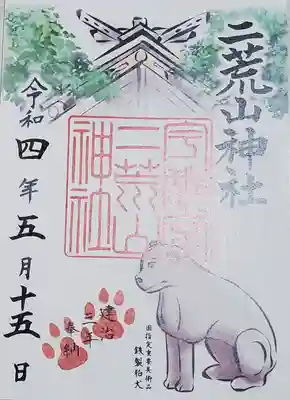 二荒山神社
宇都宮
二荒山
神社
国指定重要美術品
鉄製狛犬
建治
三年
奉納
令和四年五月十五日